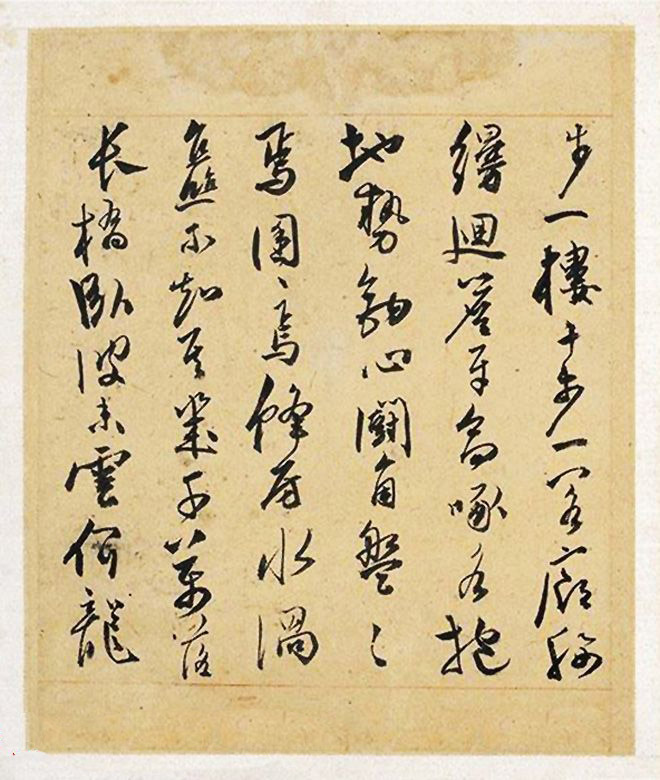 步一樓十步一閣廊腰
縵迴簷牙高啄各抱
地勢鉤心鬪角盤〻
焉囷〻焉蜂房水渦
矗不知其幾千萬落
長橋臥波未雲何龍